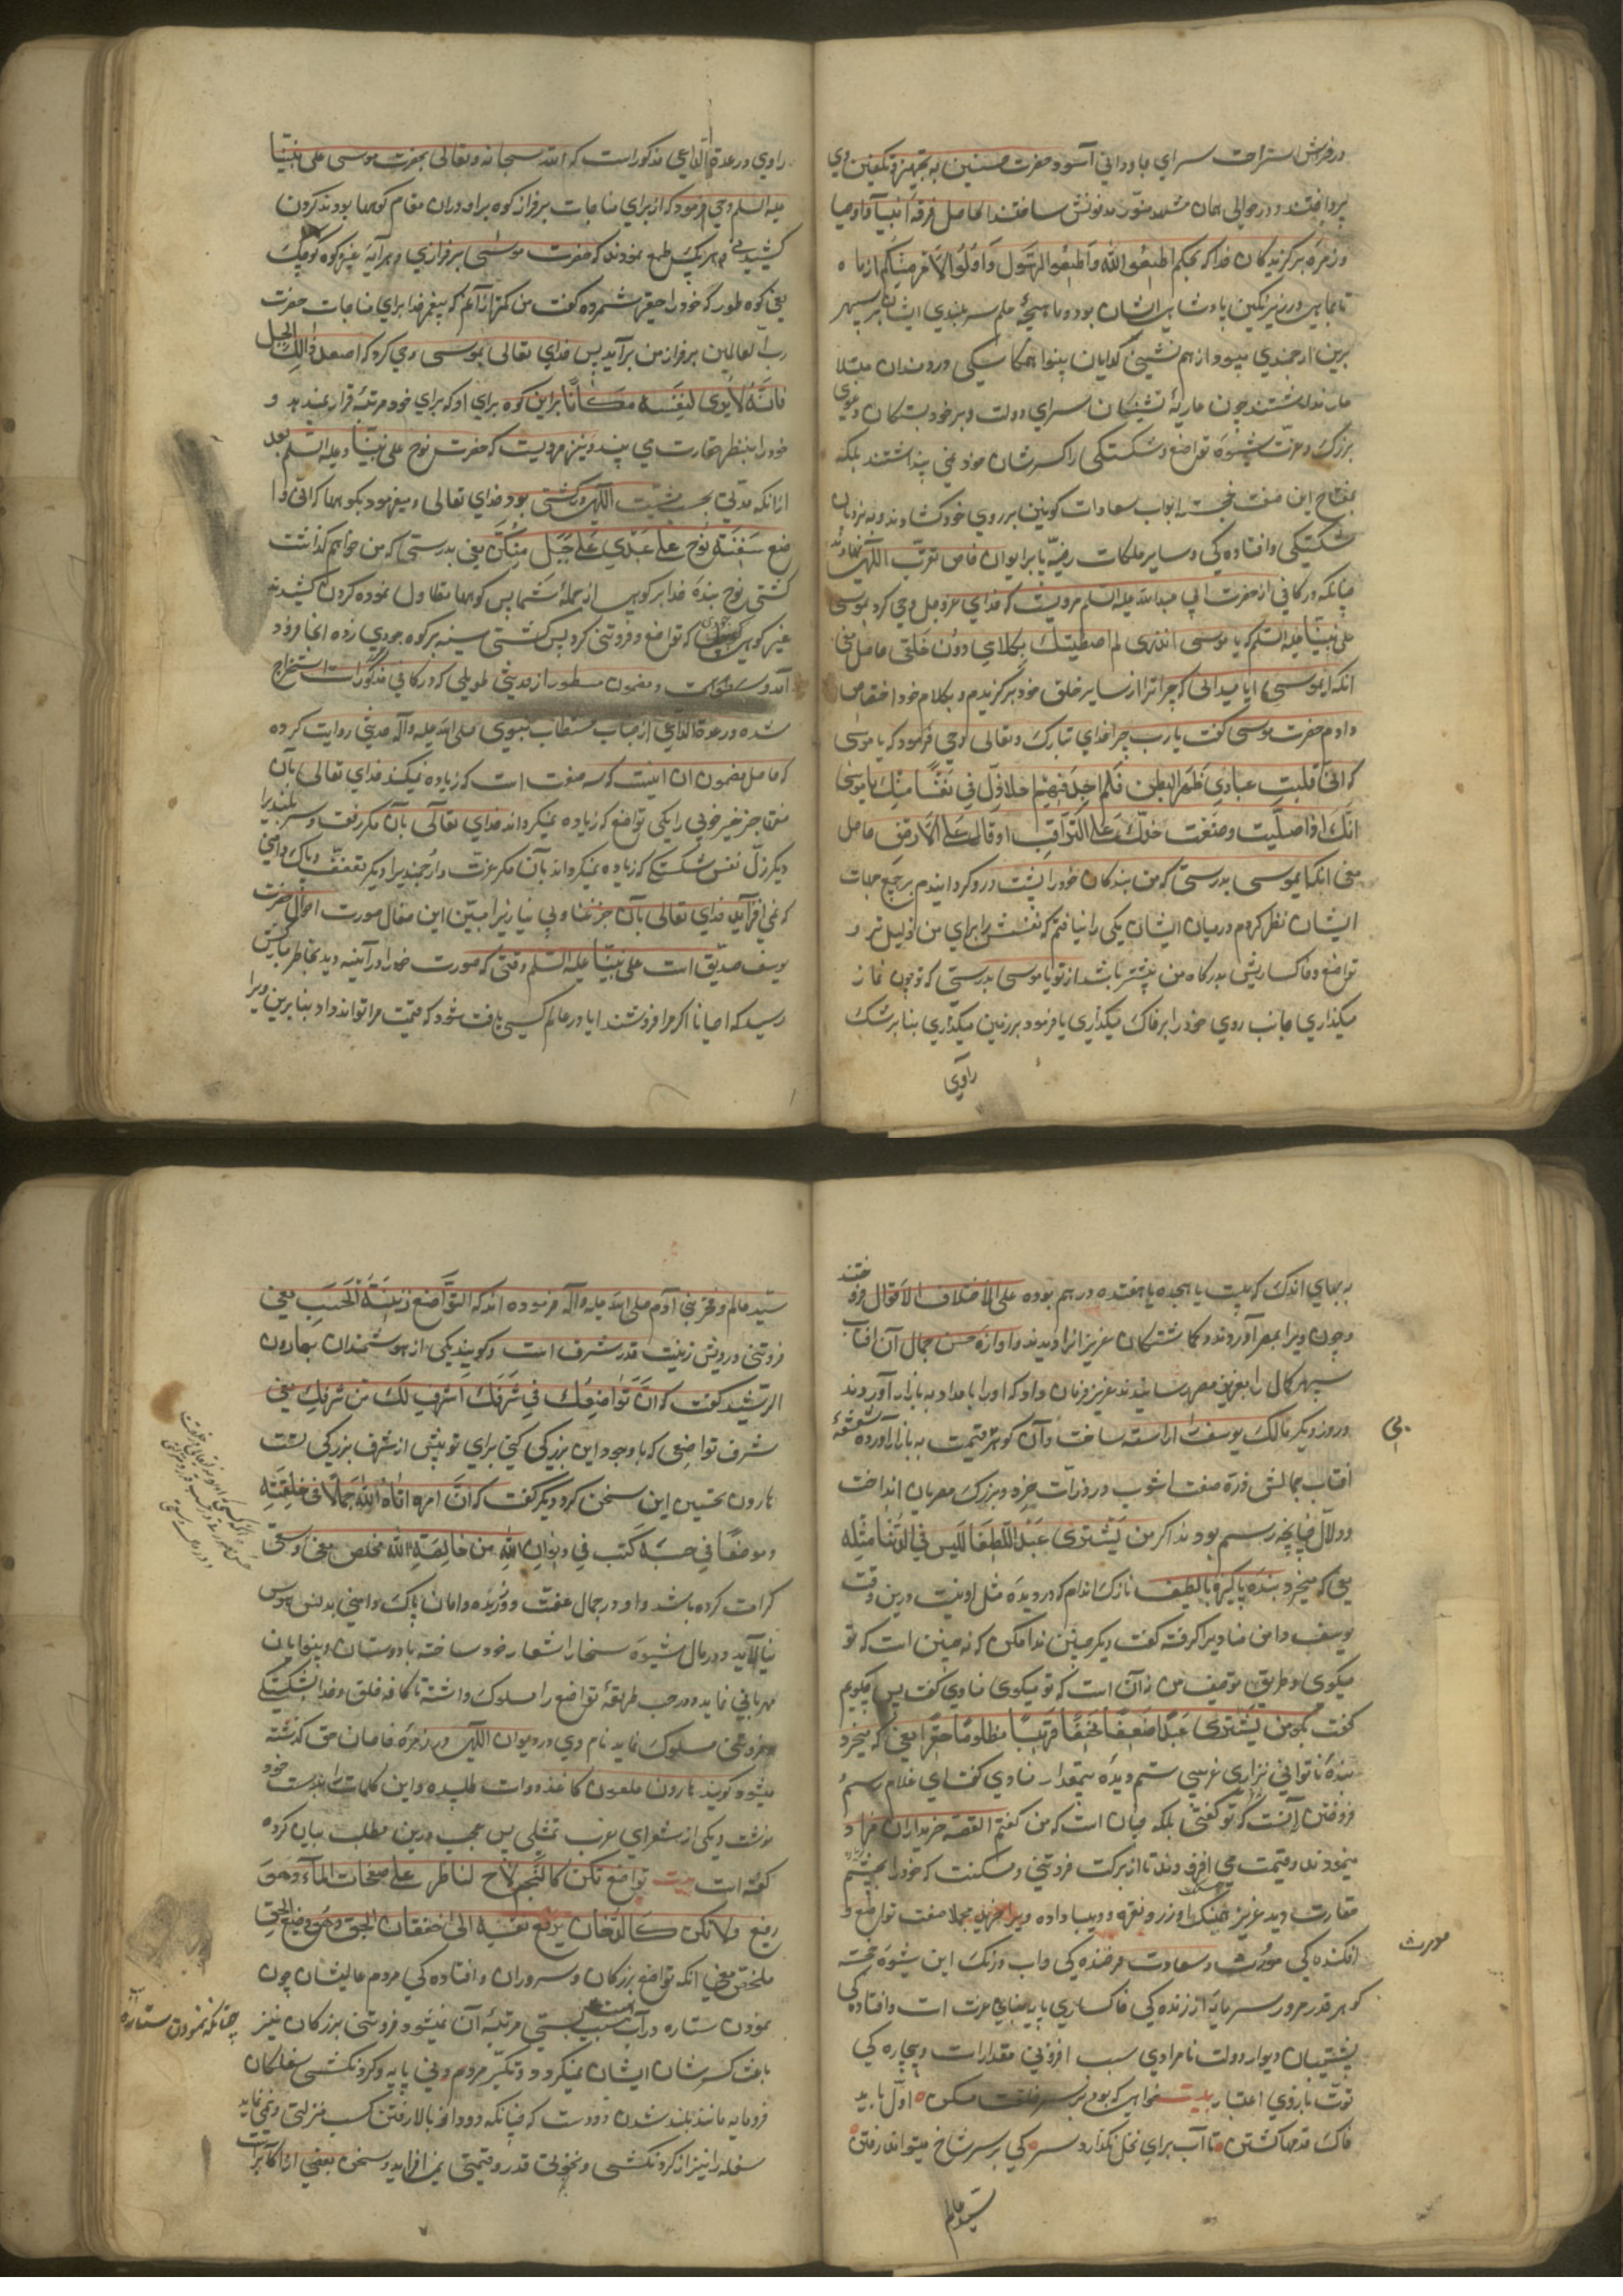 در فراش استراحت سرای جاودانی آسود حضرت حسنین به تجهیز و تکفین وی
پرداختند و در حوالی همان مشهد منور مدفونش ساختند الحاصل فرقه انبیا و اوصیا
و زمره برگزیدگان خدا که بحکم اطیعوا الله و اطیعوا الرسول و اولوا الامر منکم از ماه
تا بماهی در زیر نگین پادشاهی ایشان بود و ماهیچهٔ علم سربلندی ایشان بر سپهر
برین ارجمندی میسود از هم نشینی گدایان بینوا و همکاسیکی دردمندان مبتلا
عار نداشتند چون عاریه نشینان سرای دولت و بر خود بستگان دعوی
بزرگی و عزت شیوهٔ تواضع و شکستگی را کسر شان خود نمی پنداشتند بلکه
بمفتاح این صفت خجسته ابواب سعادات کونین بر روی خود گشادند و به نردبان
شکستگی و افتاده کی و سایر ملکات رضیه پا بر ایوان خاص تقرب الهی نهادند
چنانکه در کافی از حضرت ابی عبدالله علیه السلم مرویست که خدای عزوجل وحی کرد بموسی
علی نبینا علیه السلم که یا موسی اتدری لم اصطفیتک بکلامی دون خلقی حاصل معنی
انکه ای موسی آیا میدانی که چرا ترا از سایر خلق خود برگزیدم و بکلام خود اختصاص
دادم حضرت موسی گفت یا رب چرا خدای تبارک و تعالی وحی فرمود که یا موسی
که انی قلبت عبادی ظهرا لبطن فلم اجد فیهم احدا اذل لی نفسا منک یا موسی
انک اذا صلیت وضعت خدک علی التراب او قال علی الارض حاصل
معنی انکه ایموسی بدرستی که من بندکان خود را پشت و رو گردانیدم بر جمیع جهات
ایشان نظر کردم در میان ایشان یکی را نیافتم که نفسش برای من ذلیل تر و
تواضع و خاکساریش بدرگاه من بیشتر باشد از تو یا موسی بدرستی که تو چون نماز
میگذاری جانب روی خود را بر خاک میگذاری یا فرمود بر زمین میگذاری بنابر شک
راوی
راوی و در عدة الداعی مذکور است که الله سبحانه و تعالی بحضرت موسی علی نبینا
علیه السلم وحی فرمود که از برای مناجات بر فراز کوه برا و در ان مقام کوهها بودند گردن
کشیدند و هر یک طمع نمودند که حضرت موسی بر فرازی وی برآید بغیر کوه کوچک
یعنی کوه طور که خود را حقیر شمرده گفت من کمتر از آنم که پیغمبر خدا برای مناجات حضرت
رب العالمین بر فراز من برآید پس خدای تعالی بموسی وحی کرد که اصعد ذلک الجبل
فانه لا یری لنفسه مکانا براین کوه برای او که برای خود مرتبهٔ قرار نمیدهد و
خود را بنظر حقارت می بیند و نیز مرویست که حضرت نوح علی نبینا و علیه السلم بعد
ازانکه مدتی بحسب مشیت الهی در کشتی بود خدای تعالی وحی فرمود بکوهها که انی وا
ضع سفینة نوح علی عبدی علی جبل منکن یعنی بدرستی که من خواهم گذاشت
کشتی نوح بنده خدا بر کوهی از جمله شما پس کوهها تطاول نموده گردن کشیدند
غیر کوه جودی که تواضع و فروتنی کرد پس کشتی سینه بر کوه جودی زده انجا فرود
آمد و مضمون مسطور از حدیثی طویلی که در کافی مذکور است استخراج
شده و در عدة الداعی از جناب مستطاب نبوی صلی الله علیه و آله حدیثی روایت کرده
که حاصل مضمون ان اینست که سه صفت است که زیاده نمیکند خدای تعالی بآن
صفتها جز خیر و خوبی را یکی تواضع که زیاده نمیگرداند خدای تعالی بآن مگر رفعت و سربلندیرا
دیگر ذل نفس و شکستگی که زیاده نمیگرداند بآن مگر عزت و ارجمندیرا دیگر تعفف و پاک دامنی
که نمی افزاید خدای تعالی بآن جز غنا و بی نیازیرا مبین این مقال صورت احوال حضرت
یوسف صدیق است علی نبینا علیه السلم وقتی که صورت خود را در آینه دید بخاطر مبارکش
رسید که احیانا اگر مرا فروشند ایا در عالم کسی یافت شود که قیمت مرا تواند داد بنابراین ویرا
به بهای اندک که بیست یا هجده یا هفده درهم بوده علی الاختلاف الاقوال فروختند
و چون ویرا بمصر آوردند و گماشتگان عزیز او را دیدند و اوازهٔ حسن جمال آن افتاب
سپهر کمال را بعزیز مصر رسانیدند عزیز فرمان داد که او را بامداد به بازار آوردند
و روز دیگر مالک یوسف را اراسته ساخت و آن گوهر قیمت به بازار آورد شعشعهٔ
بی
افتاب جمالش ذره صفت اشوب در ذرات خرد و بزرگ مصریان انداخت
و دلال چنانچه رسم بود ندا کرد من یشتری عبدا لطیفا لیس فی الدنیا مثله
یعنی که میخرد بنده پاکیزه با لطیف نازک اندام که در دیده مثل او نیست درین وقت
یوسف دامن منادیرا گرفته گفت دیگر چنین ندا مکن که نه چنین است که تو
میکوی و طریق توصیف من نه آن است که تو میکوی منادی گفت پس چگویم
گفت بگو من یشتری عبدا ضعیفا نحیفا غریبا مظلوما حقیرا یعنی که میخرد
بندهٔ ناتوانی نزاری غریبی ستم دیدهٔ بیمقدار منادی گفت ای غلام رسم
فروختن آنست که تو گفتی بلکه چنان است که من گفتم القصه خریداران
مینمودند و قیمت می افزودند تا از برکت فروتنی و مسکنت که خود را بچشم
حقارت دید عزیز همسنگ او زر و نقره و دیبا داده ویرا خرید مجملا صفت تواضع و
افکنده کی مورث سعادت فرخنده کی و اب و رنگ این شیوهٔ خجسته
مورث
گوهر قدر مرد سرمایهٔ ارزنده کی خاکساری پایه بنای عزت است و افتاده کی
پشتیبان دیوار دولت نامرادی سبب افزونی مقدار است و بیچاره کی
قوت بازوی اعتبار بیت خواهی که بود بر سر خلقت مسکن اول باید
خاک قدمها گشتن تا آب برای نخل نگذارد سر کی بر سر شاخ میتواند رفتن
سید عالم
سید عالم و فخر بنی آدم صلی الله علیه و آله فرموده اند که التواضع زینة الحسب یعنی
فروتنی و درویشی زینت قدر و شرف است و گویند یکی از هوشمندان بهارون
الرشید گفت که ان تواضعک فی شرفک اشرف لک من شرفک یعنی
شرف تواضعی که با وجود این بزرگی کنی برای تو بیش از شرف بزرگی تست
هارون تحسین این سخن کرد و دیگر گفت که ان امرء اتاه الله جمالا فی خلقته
و موضعا فی حسبه کتب فی دیوان الله من خالصة الله مخلص معنی
کرامت کرده باشد و او در جمال عفت ورزیده و امان پاک دامنی بدنس هوس
نیالاید و در مال شیوهٔ سخا را شعار خود ساخته با دوستان و بینوایان
مهربانی نماید و در حسب طریقهٔ تواضع را مسلوک داشته تا کافه خلق و خدا بشکستگی
و فروتنی مسلوک نماید نام وی در دیوان الهی در زمره خاصان حق گذشته
میشود گویند هارون ملعون کاغذ و دوات طلبیده و این کلمات را بدست خود
نوشت و یکی از شعرای عرب تمثیلی بس عجب درین مطلب بیان کرده
گفته است بیت تواضع تکن کالنجم لاح لناظر علی صفحات الماء و هو
رفیع و لا تکن کالدخان یرفع نفسه الی طبقات الجو و هو وضیع
ملخص معنی انکه تواضع بزرگان و سروران و افتاده کی مردم عالیشان چون
نمودن ستاره در آب سبب پستی مرتبهٔ آن نمیشود فروتنی بزرگان نیز
چنانکه نمودن ستاره
باعث کسر شان ایشان نمیگردد و تکبر مردم دنی پایه و گردنکشی سفلگان
فرومایه مانند بلند شدن دودست که چنانکه دود از بالا رفتن کسب منزلتی نمی نماید
سفله را نیز از گردنکشی و نخوت قدر و قیمتی نمی افزاید و سخن بعضی